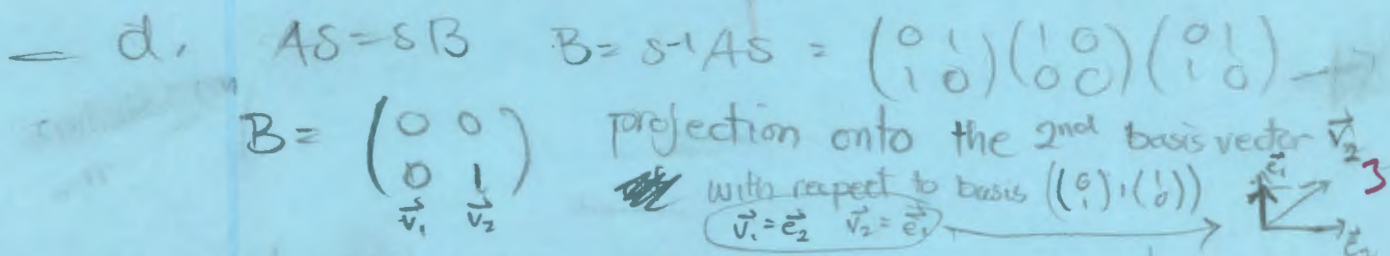 d. AS = SB B = S⁻¹AS = (0 1 / 1 0)(1 0 / 0 0)(0 1 / 1 0) →
B = (0 0 / 0 1) projection onto the 2nd basis vector v⃗₂
v⃗₁ v⃗₂ with respect to basis ((0 / 1), (1 / 0)) e⃗₁ 3
v⃗₁ = e⃗₂ v⃗₂ = e⃗₁ e⃗₂